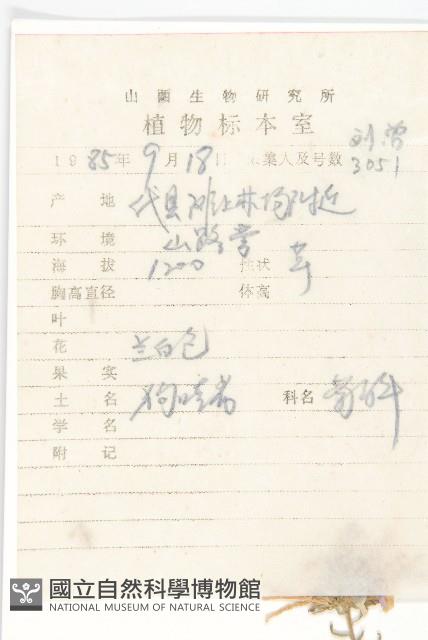 山西生物研究所
植物标本室
1985年9月18日 采集人及号数 刘 3051
产地 代县 林场附近
环境 山路旁
海拔 1200 性状 草
胸高直径 体高
叶
花 兰白色
果实
土名 狗哇花
科名 菊科
学名
附记
國立自然科學博物館
NATIONAL MUSEUM OF NATURAL SCIENCE